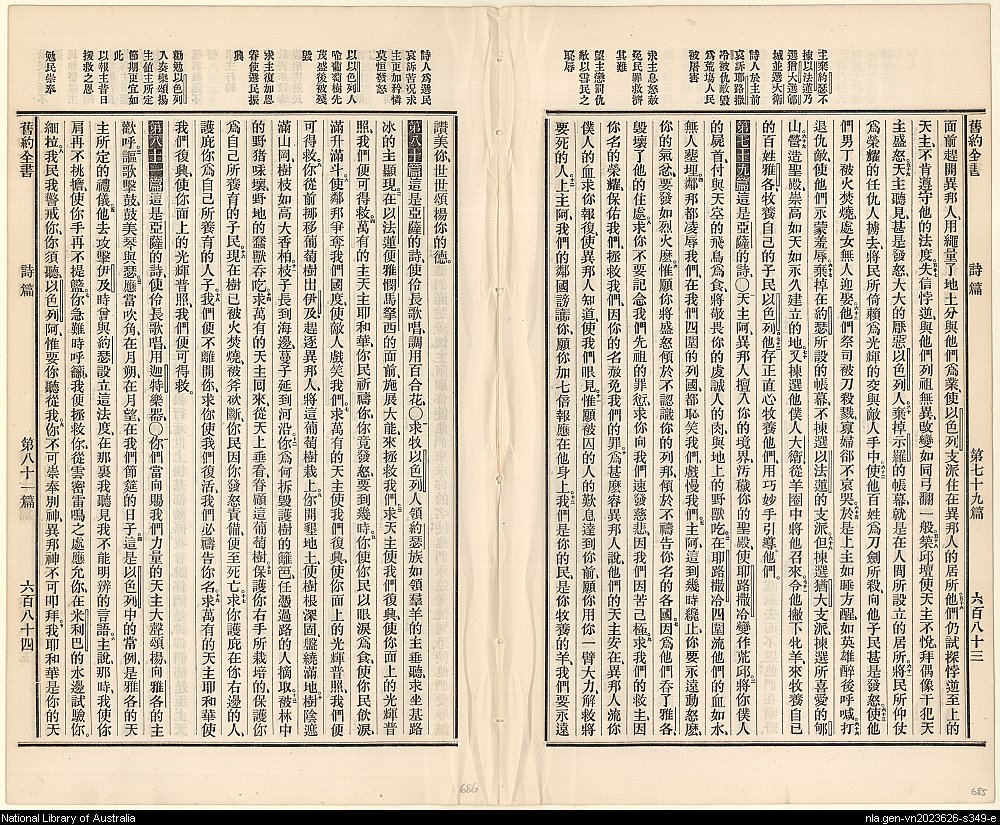 舊約全書 詩篇 第七十九篇 六百八十三
主棄約瑟不
揀以法蓮乃
選猶大選郇
城並選大衛
詩人於主前
哀訴耶路撒
冷被仇敵毀
為荒塲人民
被屠害
求主息怒赦
免民罪救濟
其難
望主懲罰仇
敵以雪民之
恥辱
面前趕開異邦人用繩量了地土分與他們爲業使以色列支派住在異邦人的居所他們仍試探悖逆至上的
天主不肯遵守他的法度失信悖逆與他們列祖無異改變如同弓翻一般築邱壇使天主不悅拜偶像干犯天
主盛怒天主聽見甚是發怒大大的厭惡以色列人棄掉示羅的帳幕就是在人間所設立的居所將民所仰仗
爲榮耀的任仇人擄去將民所倚賴爲光輝的交與敵人手中使他百姓爲刀劍所殺向他子民甚是發怒使他
們男丁被火焚燒處女無人迎娶他們祭司被刀殺戮寡婦卻不哀哭於是上主如睡方醒如英雄醉後呼喊打
退仇敵使他們永蒙羞辱棄掉在約瑟所設的帳幕不揀選以法蓮的支派但揀選猶大支派揀選所喜愛的郇
山營造聖殿崇高如天如永久建立的地又揀選他僕人大衛從羊圈中將他召來令他撇下牝羊來牧養自已
的百姓雅各牧養自己的子民以色列他存正直心牧養他們用巧妙手引導他們
第七十九篇這是亞薩的詩〇天主阿異那人擅入你的境界污穢你的聖殿使耶路撒冷變作荒邱將你僕人
的屍首付與天空的飛鳥爲食將敬畏你的虔誠人的肉與地上的野獸吃在耶路撒冷四圍流他們的血如水
無人塟埋鄰邦都凌辱我們在我們四圍的列國都恥笑我們戲慢我們主阿這到幾時纔止你要永遠動怒麼
你的氣忿要發如烈火麼惟願你將盛怒傾於不認識你的列邦傾於不禱告你名的各國因爲他們吞了雅各
毀壞了他的住處求你不要記念我們先祖的罪愆求你向我們速發慈悲因我們困苦已極求我們的救主因
你名的榮耀保佑我們拯救我們因你的名赦免我們的罪爲甚麼容異邦人說他們的天主安在異邦人流你
僕人的血求你報復使異邦人知道使我們眼見惟願被囚的人的歎息達到你前願你用你一臂大力解救將
要死的人上主阿我們的鄰國謗讟你願你加七倍報應在他身上我們是你的民是你牧養的羊我們要永遠
685
舊約全書 詩篇 第八十一篇 六百八十四
詩人爲選民
哀訴苦況求
主更加矜憐
莫恒發怒
以以色列人
喻葡萄樹先
茂盛後被殘
毀
求主復加恩
眷使選民振
興
勸勉以色列
人奏樂頌揚
主値主所定
節期更宜如
此
以報主昔日
援救之恩
勉民崇奉
讚美你世世頌揚你的德
第八十篇這是亞薩的詩使伶長歌唱調用百合花〇求牧以色列人領約瑟族如領羣羊的主垂聽求坐基路
冰的主顯現在以法蓮便雅憫馬拏西的面前施展大能來拯救我們求天主使我們復興使你面上的光輝普
照我們便可得救萬有的主天主耶和華你民祈禱你你竟發怒要到幾時你使你民以眼淚爲食使你民飲淚
滿升滿斗使鄰邦爭奪我們國度使敵人戲笑我們求萬有的天主使我們復興使你面上的光輝普照我們便
可得救你從前挪移葡萄樹出伊及趕逐異邦人將這葡萄樹栽上你開墾地土使樹根深固盤繞滿地樹陰遮
滿山岡樹枝如高大香柏枝子長到海邊蔓子延到河沿你爲何拆毀護樹的籬笆任憑過路的人摘取被林中
的野猪㖡壞野地的蠢獸吞吃求萬有的天主囘來從天上垂看眷顧這葡萄樹保護你右手所栽培的保護你
爲自己所養育的子民現在樹已被火焚燒被斧砍斷你民因你發怒責備便至死亡求你護庇在你右邊的人
護庇你爲自己所養育的人子我們便不離開你求你使我們復活我們必禱告你名求萬有的天主耶和華使
我們復興使你面上的光輝普照我們便可得救
第八十一篇這是亞薩的詩使伶長歌唱用迦特樂器〇你們當向賜我們力量的天主大聲頌揚向雅各的主
歡呼謳歌擊鼓鼓美琴與瑟應當吹角在月朔在月望在我們節筵的日子這是以色列中的常例是雅各的天
主所定的禮儀他去攻擊伊及時曾與約瑟設立這法度在那裏我聽見我不能明辨的言語主說那時我使你
肩再不挑擔使你手再不提籃你急難時呼籲我便拯救你從雲密雷鳴之處應允你在米利巴的水邊試驗你
細拉我民我警戒你你須聽以色列阿惟要你聽從我你不可祟奉別神異邦神不可叩拜我耶和華是你的天
686
National Library of Australia
nla.gen-vn2023626-s349-e